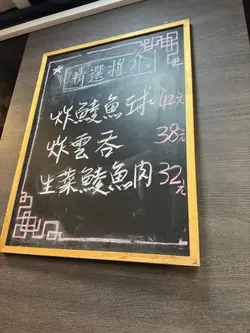 精選推介
炸鯪魚球 42元
炸雲吞 38元
生菜鯪魚肉 32元